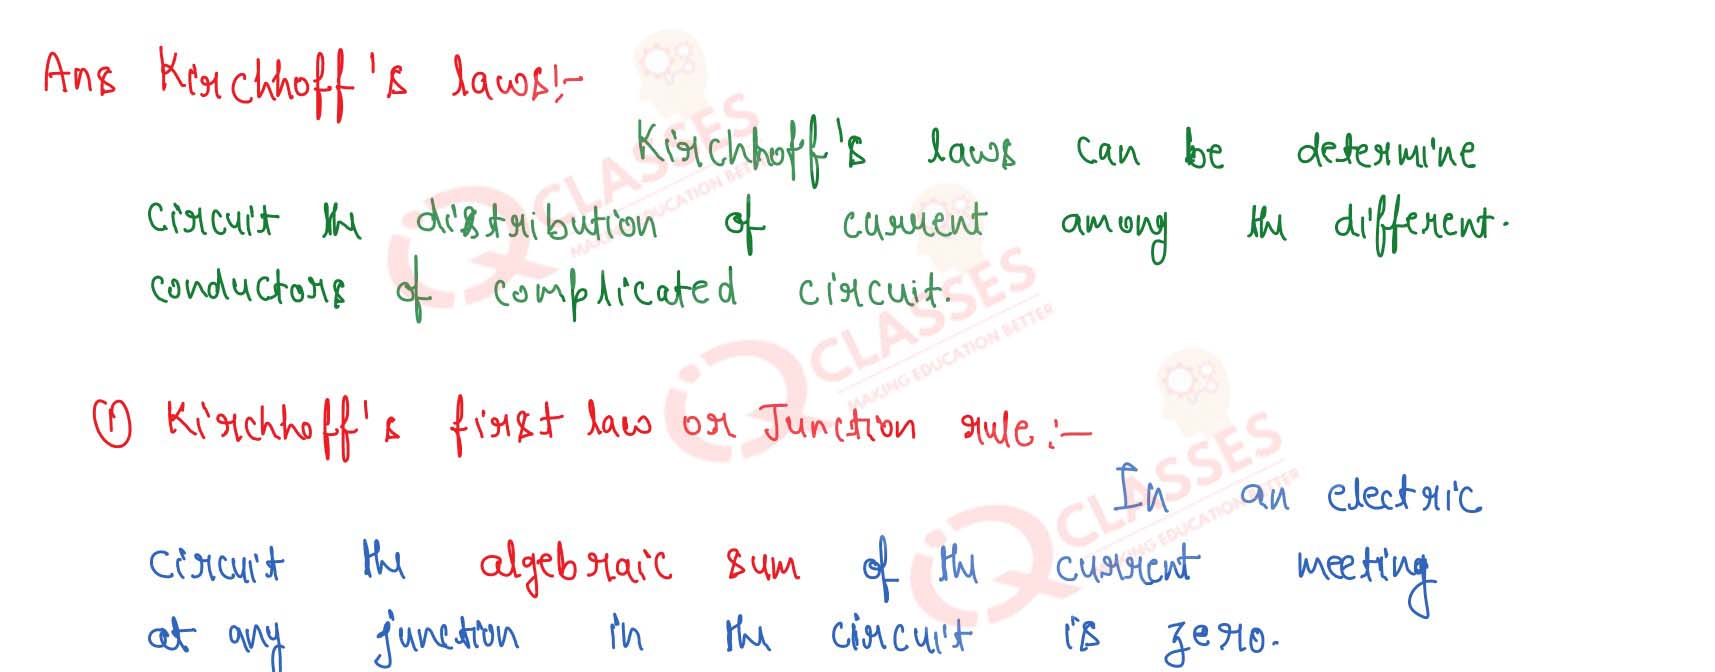 Ans Kirchhoff's laws:-
Kirchhoff's laws can be determine
circuit the distribution of current among the different.
conductors of complicated circuit.
① Kirchhoff's first law or Junction rule:-
In an electric
circuit the algebraic sum of the current meeting
at any junction in the circuit is zero.
CLASSES
MAKING EDUCATION BETTER
CLASSES
MAKING EDUCATION BETTER
CLASSES
MAKING EDUCATION BETTER